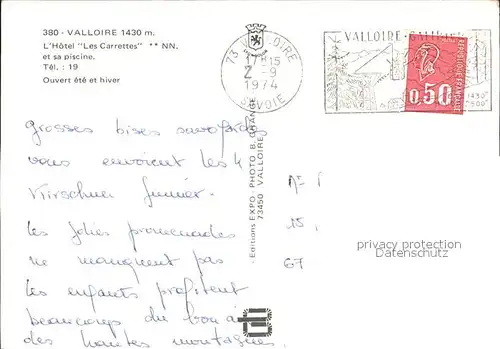 380 - VALLOIRE 1430 m.
L'Hôtel "Les Carrettes" ** NN.
et sa piscine.
Tél. : 19
Ouvert été et hiver
73 VALLOIRE
17H15
2 -9
1974
SAVOIE
VALLOIRE - GALIBIER
1430
0,50
POSTES
REPUBLIQUE FRANÇAISE
Grosses bises savoyardes
vous envoient les 4
Kirschner Junior.
Les jolies promenades
ne manquent pas
les enfants profitent
beaucoup du bon air
des hautes montagnes
Editions EXPO - PHOTO B. GRANGE
73450 VALLOIRE
15,
67
privacy protection
Datenschutz